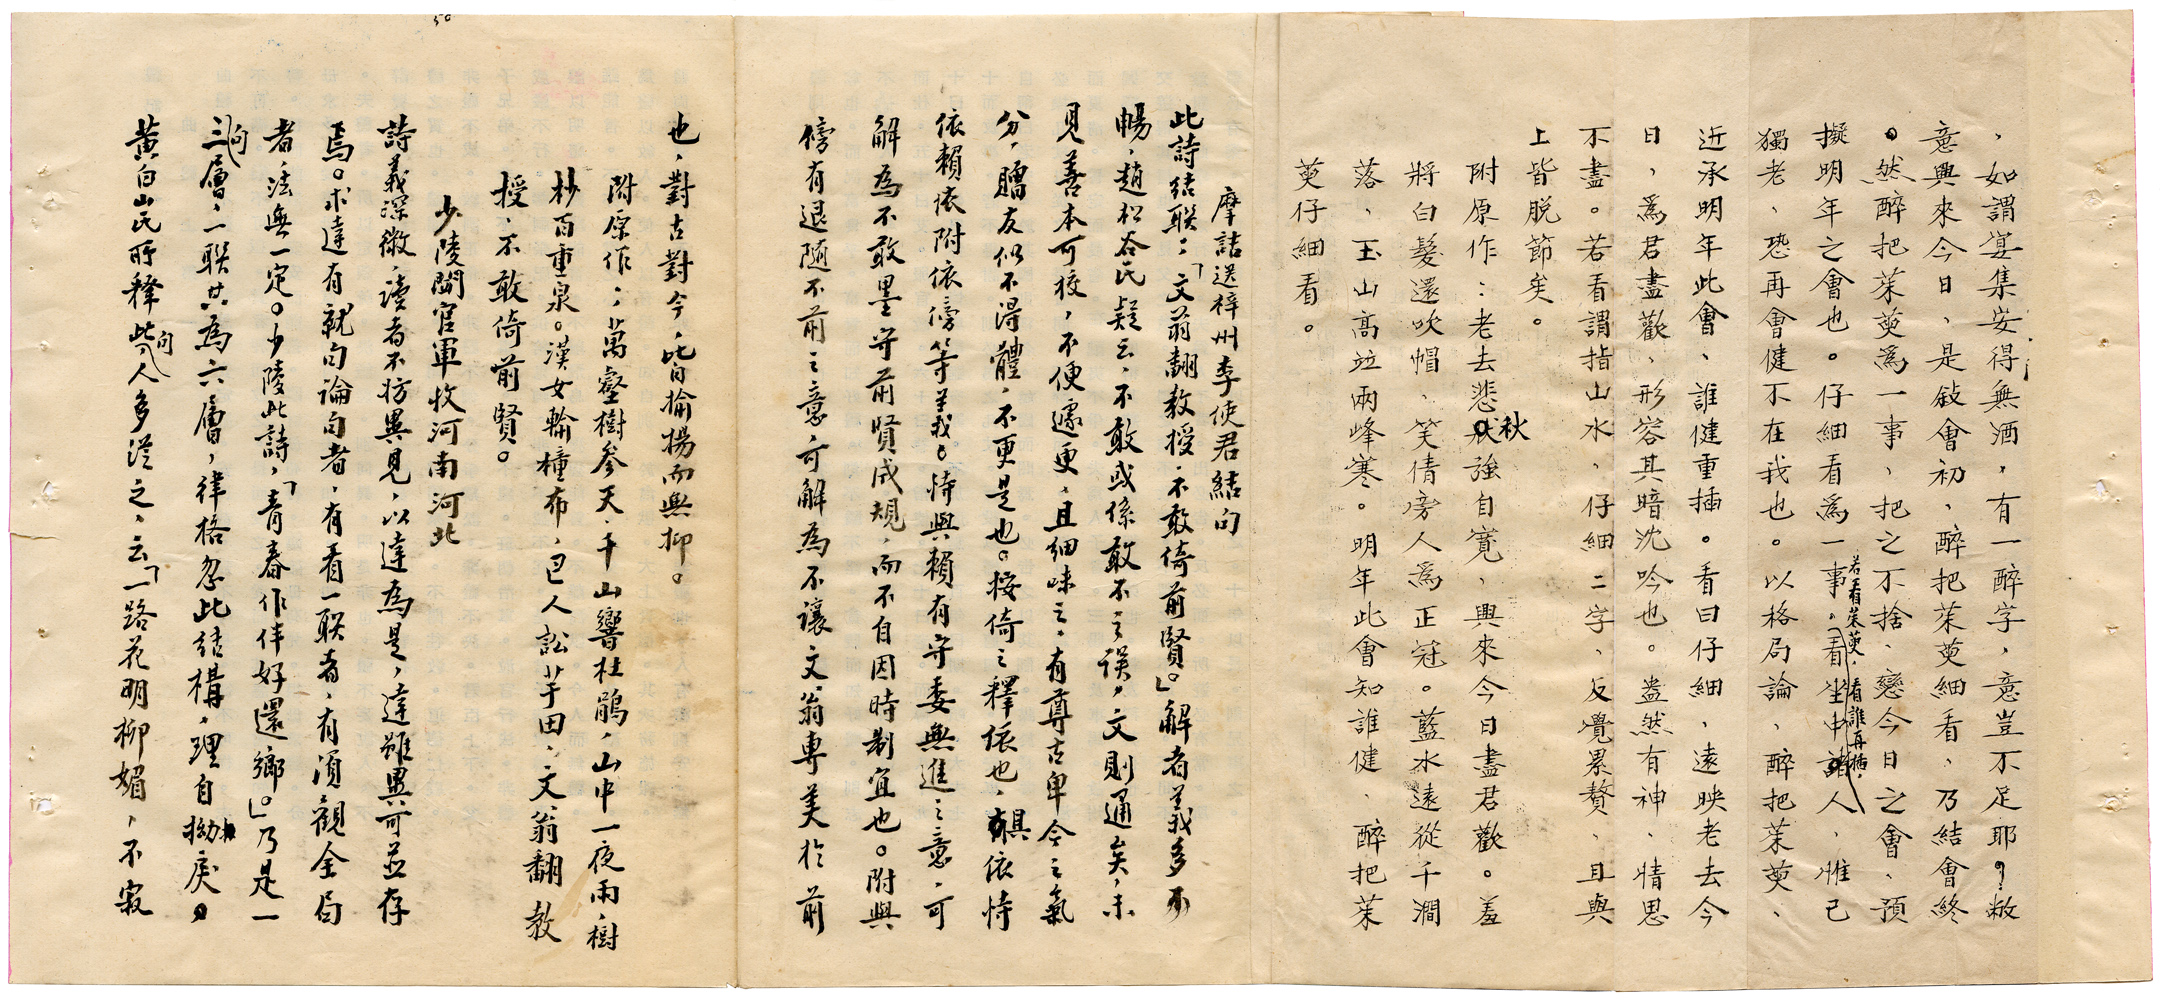 、如謂宴集安得無酒，有一醉字，意豈不足耶？敘
意興來今日、是敍會初、醉把茱萸細看、乃結會終
。然醉把茱萸爲一事、把之不捨、戀今日之會、預
擬明年之會也。仔細看爲一事。看坐中諸人、惟已
若看茱萸，看誰再插，
獨老、恐再會健不在我也。以格局論、醉把茱萸、
近承明年此會、誰健重插。看曰仔細，遠映老去今
日，爲君盡歡、形容其暗沈吟也。盎然有神、情思
不盡。若看謂指山水、仔細二字、反覺累贅、且與
上皆脱節矣。
附原作：老去悲秋強自寬，興來今日盡君歡。羞
將白髮還吹帽、笑倩旁人爲正冠。藍水遠從千澗
落、玉山高竝兩峰寒。明年此會知誰健、醉把茱
萸仔細看。
摩詰送梓州李使君結句
此詩結聯：「文翁翻教授，不敢倚前賢」。解者義多不
暢，趙松谷氏疑云，不敢或係敢不之誤，文則通矣，未
見善本可校，不便遽更，且細味之，有尊古卑今之氣
分，贈友似不得體，不更是也。按倚之釋依也，俱依恃
依賴依附依傍等義。恃與賴有守委無進之意，可
解為不敢墨守前賢成規，而不自因時制宜也。附與
傍有退隨不前之意，可解為不讓文翁專美於前
也，對古對今，皆揄揚而無抑。
附原作：萬壑樹參天，千山響杜鵑，山中一夜雨，樹
杪百重泉。漢女輸橦布，巴人訟芋田，文翁翻教
授，不敢倚前賢。
少陵聞官軍收河南河北
詩義深微，讀者不妨異見，以達為是，達雖異可並存
焉。求達有就句論句者，有看一聯者，有須觀全局
者，法無一定。少陵此詩，「青春作伴好還鄉」。乃是一
句三層，一聯共為六層，律格忽此結構，理自拗戾，
黃白山氏所釋此句，人多從之，云「一路花明柳媚，不寂